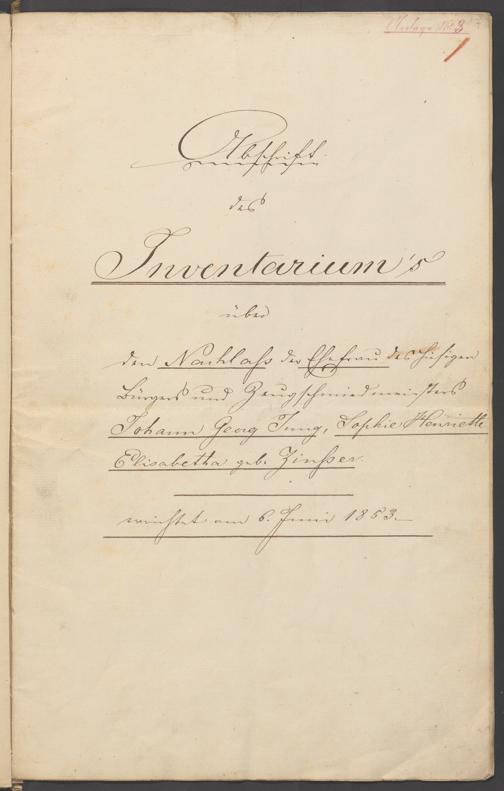 Anlage No 3
Abschrift
des
Inventarium's
über
den Nachlaß der Ehefrau des hiesigen
Bürgers und Zeugschmiedmeisters
Johann Georg Jung, Sophie Henriette
Elisabetha geb. Zinßer.
errichtet am 6. Juni 1853.